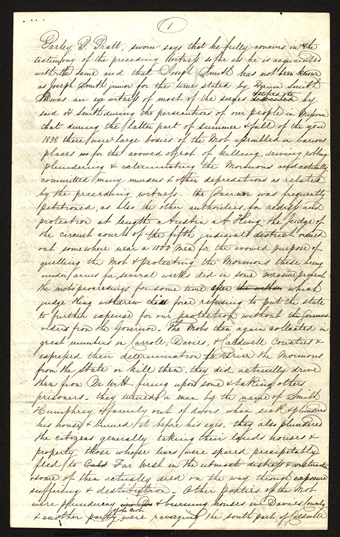 (1)
Parley P. Pratt, sworn says that he fully concurs in the
testimony of the preceding Witness so far as he is acquainted
with the same and that Joseph Smith has not been known
as Joseph Smith junior for the time stated by Hyrum Smith
He was an eye witness of most of the scenes testified by
said H Smith during the persecutions of our people in Missouri
that during the latter part of summer & fall of the year
1838 there were large bodies of the Mob assembled in various
places for the avowed object of killing, driving, robbing
plundering & exterminating the Mormons and actually
committed many murders & other depredations as related
by the preceding witness. the Governor was frequently
petitioned, as also the other authorities, for redress and
protection at length Austin A King, the Judge of
the circuit court of the fifth judicial district ordered
out somewhere near a 1000 Men for the avowed purpose of
quelling the Mob & protecting the Mormons these being
under arms for several weeks did in some measure prevent
the mobs proceedings for some time after which
judge King withdrew the force refusing to put the state
to further expense for our protection without the
orders from the Governor. The Mobs then again collected in
great numbers in Carroll, Davies, & Caldwell Counties &
expressed their determination to drive the Mormons
from the State or kill them, they did actually drive
them from De Witt firing upon some & taking other
prisoners. they turned a man by the name of Smith
Humphrey & family out of doors when sick & plundered
his house & burned it before his eyes. they also plundered
the citizens generally taking their lands houses &
property. those whose lives were spared precipitately
fled to Far West in the utmost distress &
some of them actually died on the way through exposure
suffering & destitution. Other parties of the Mob
were plundering & burning houses in Davies county
& another party of the mob were ravaging the south part of Caldwell